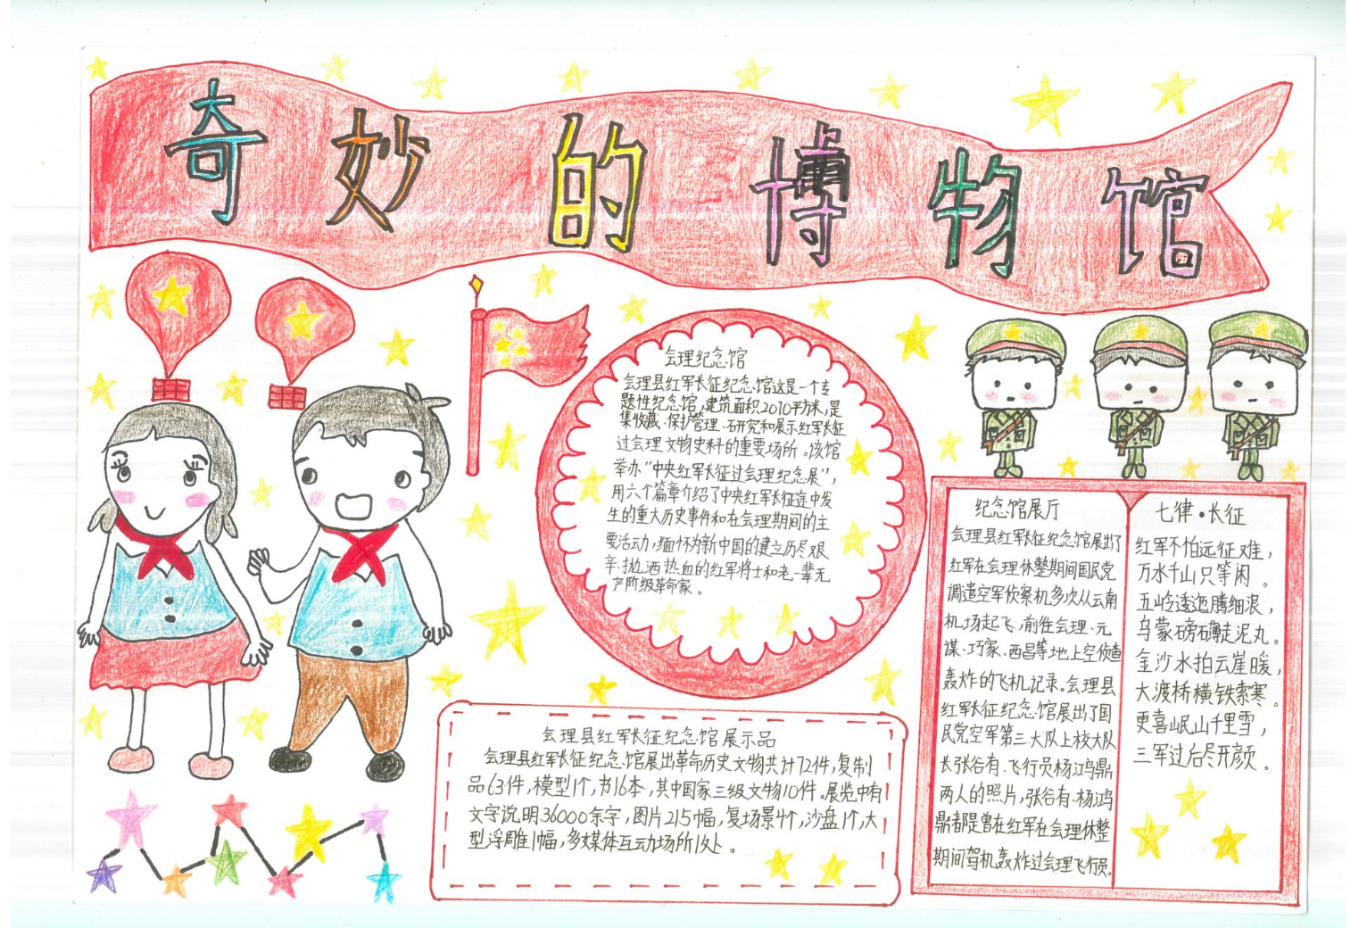 奇妙的博物馆
会理纪念馆
会理县红军长征纪念馆这是一个专
题性纪念馆,建筑面积2010平方米,是
集收藏、保护管理、研究和展示红军长征
过会理文物史料的重要场所。该馆
举办“中央红军长征过会理纪念展”,
用六个篇章介绍了中央红军长征途中发
生的重大历史事件和在会理期间的主
要活动,缅怀为新中国的建立历尽艰
辛、抛洒热血的红军将士和老一辈无
产阶级革命家。
会理县红军长征纪念馆展示品
会理县红军长征纪念馆展出革命历史文物共计72件,复制
品63件,模型1个,书16本,其中国家三级文物10件。展览中有
文字说明36000余字,图片215幅,复场景4个,沙盘1个,大
型浮雕1幅,多媒体互动场所1处。
纪念馆展厅
会理县红军长征纪念馆展出了
红军在会理休整期间国民党
调遣空军侦察机多次从云南
机场起飞,前往会理、元
谋、巧家、西昌等地上空侦查
轰炸的飞机记录。会理县
红军长征纪念馆展出了国
民党空军第三大队上校大队
长张谷有、飞行员杨江鸿鼎
两人的照片,张谷有、杨鸿
鼎都是曾在红军在会理休整
期间驾机轰炸过会理飞行员。
七律·长征
红军不怕远征难,
万水千山只等闲。
五岭逶迤腾细浪,
乌蒙磅礴走泥丸。
金沙水拍云崖暖,
大渡桥横铁索寒。
更喜岷山千里雪,
三军过后尽开颜。